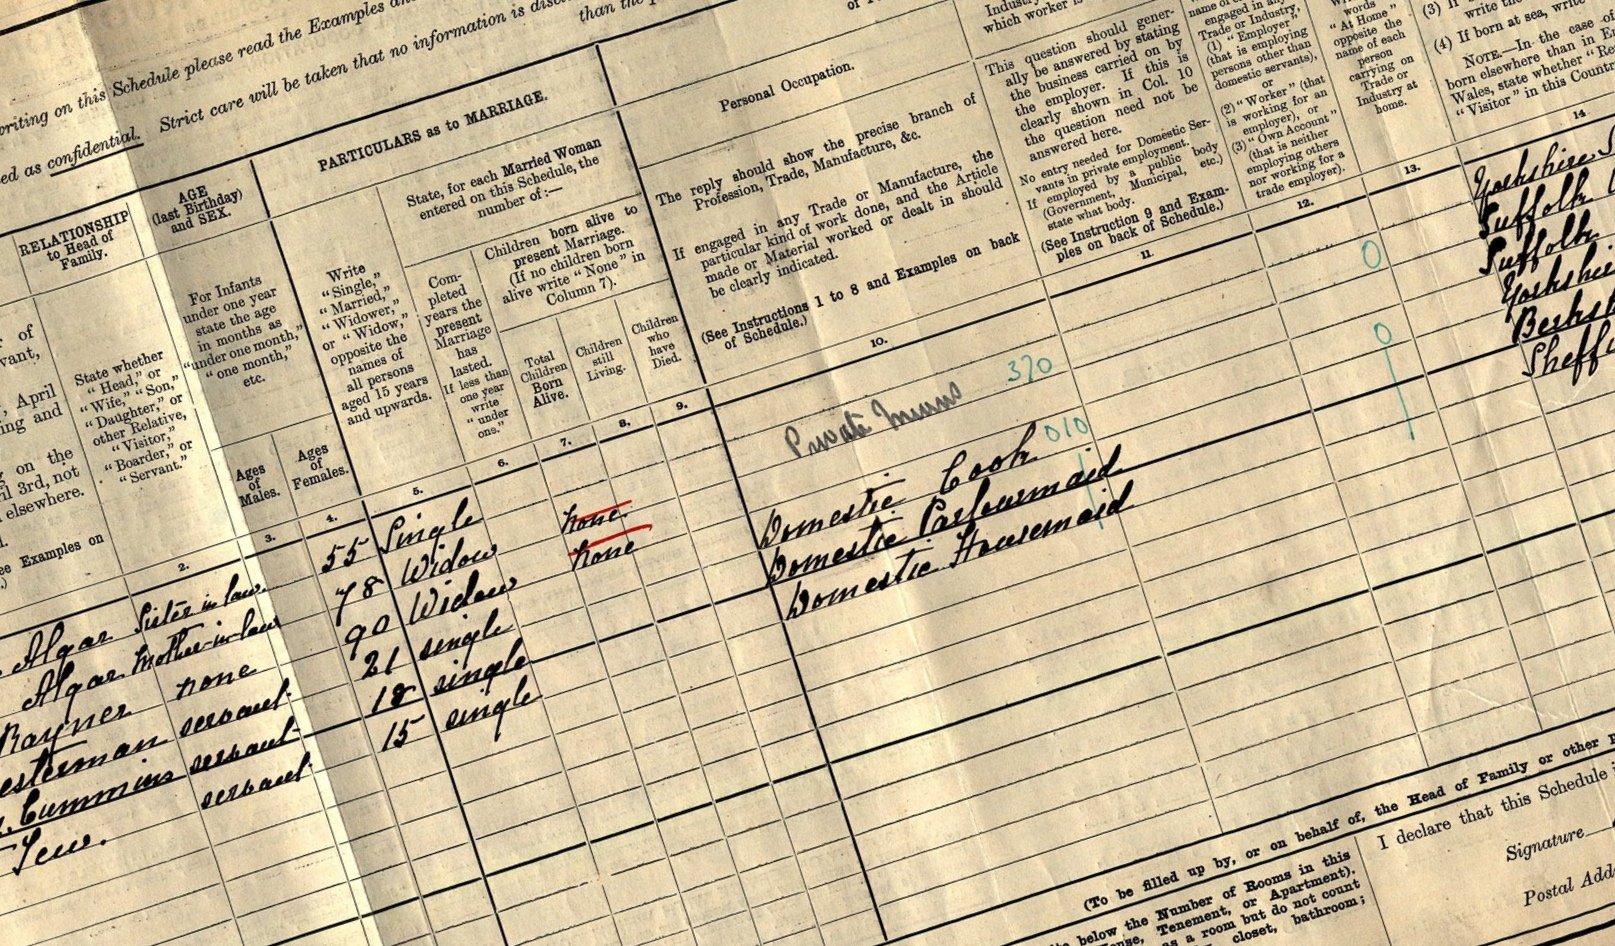 writing on this Schedule please read the Examples an
than the p
ed as confidential. Strict care will be taken that no information is disc
PARTICULARS as to MARRIAGE.
RELATIONSHIP
to Head of
Family.
AGE
(last Birthday)
and SEX.
of
vant,
April
ing and
on the
il 3rd, not
elsewhere.
Examples on
State whether
“Head,” or
“Wife,” “Son,”
“Daughter,” or
other Relative,
“Visitor,”
“Boarder,” or
“Servant.”
For Infants
under one year
state the age
in months as
“under one month,”
“one month,”
etc.
Ages
of
Males.
Ages
of
Females.
Write
“Single,”
“Married,”
“Widower,”
or “Widow,”
opposite the
names of
all persons
aged 15 years
and upwards.
State, for each Married Woman
entered on this Schedule, the
number of:—
Com-
pleted
years the
present
Marriage
has
lasted.
If less than
one year
write
“under
one.”
Children born alive to
present Marriage.
(If no children born
alive write “None” in
Column 7).
Total
Children
Born
Alive.
Children
still
Living.
Children
who
have
Died.
Personal Occupation.
The reply should show the precise branch of
Profession, Trade, Manufacture, &c.
If engaged in any Trade or Manufacture, the
particular kind of work done, and the Article
made or Material worked or dealt in should
be clearly indicated.
(See Instructions 1 to 8 and Examples on back
of Schedule.)
Industry
which worker is
This question should gener-
ally be answered by stating
the business carried on by
the employer. If this is
clearly shown in Col. 10
the question need not be
answered here.
No entry needed for Domestic Ser-
vants in private employment.
If employed by a public body
(Government, Municipal, etc.)
state what body.
(See Instruction 9 and Exam-
ples on back of Schedule.)
engaged in any
Trade or Industry,
(1) “Employer,”
(that is employing
persons other than
domestic servants),
or
(2) “Worker” (that
is working for an
employer), or
(3) “Own Account”
(that is neither
employing others
nor working for a
trade employer).
words
“At Home”
opposite the
name of each
person
carrying on
Trade or
Industry at
home.
(3) If
write the
(4) If born at sea, write
NOTE.—In the case of
born elsewhere than in En
Wales, state whether “Re
“Visitor” in this Country
2. 3. 4. 5. 6. 7. 8. 9. 10. 11. 12. 13. 14
Algar Sister in law. 55 Single Yorkshire S
Algar Mother-in-law 78 Widow none. Private Means 320 Suffolk
Rayner none 90 Widow none 0 Suffolk
esterman servant 21 single Domestic Cook 010 Yorkshire
Cummins servant 18 single Domestic Parlourmaid 0 Berksh
Tew. servant 15 single Domestic Housemaid Sheffi
(To be filled up by, or on behalf of, the Head of Family or other
below the Number of Rooms in this
House, Tenement, or Apartment).
as a room but do not count
closet, bathroom;
I declare that this Schedule
Signature
Postal Add